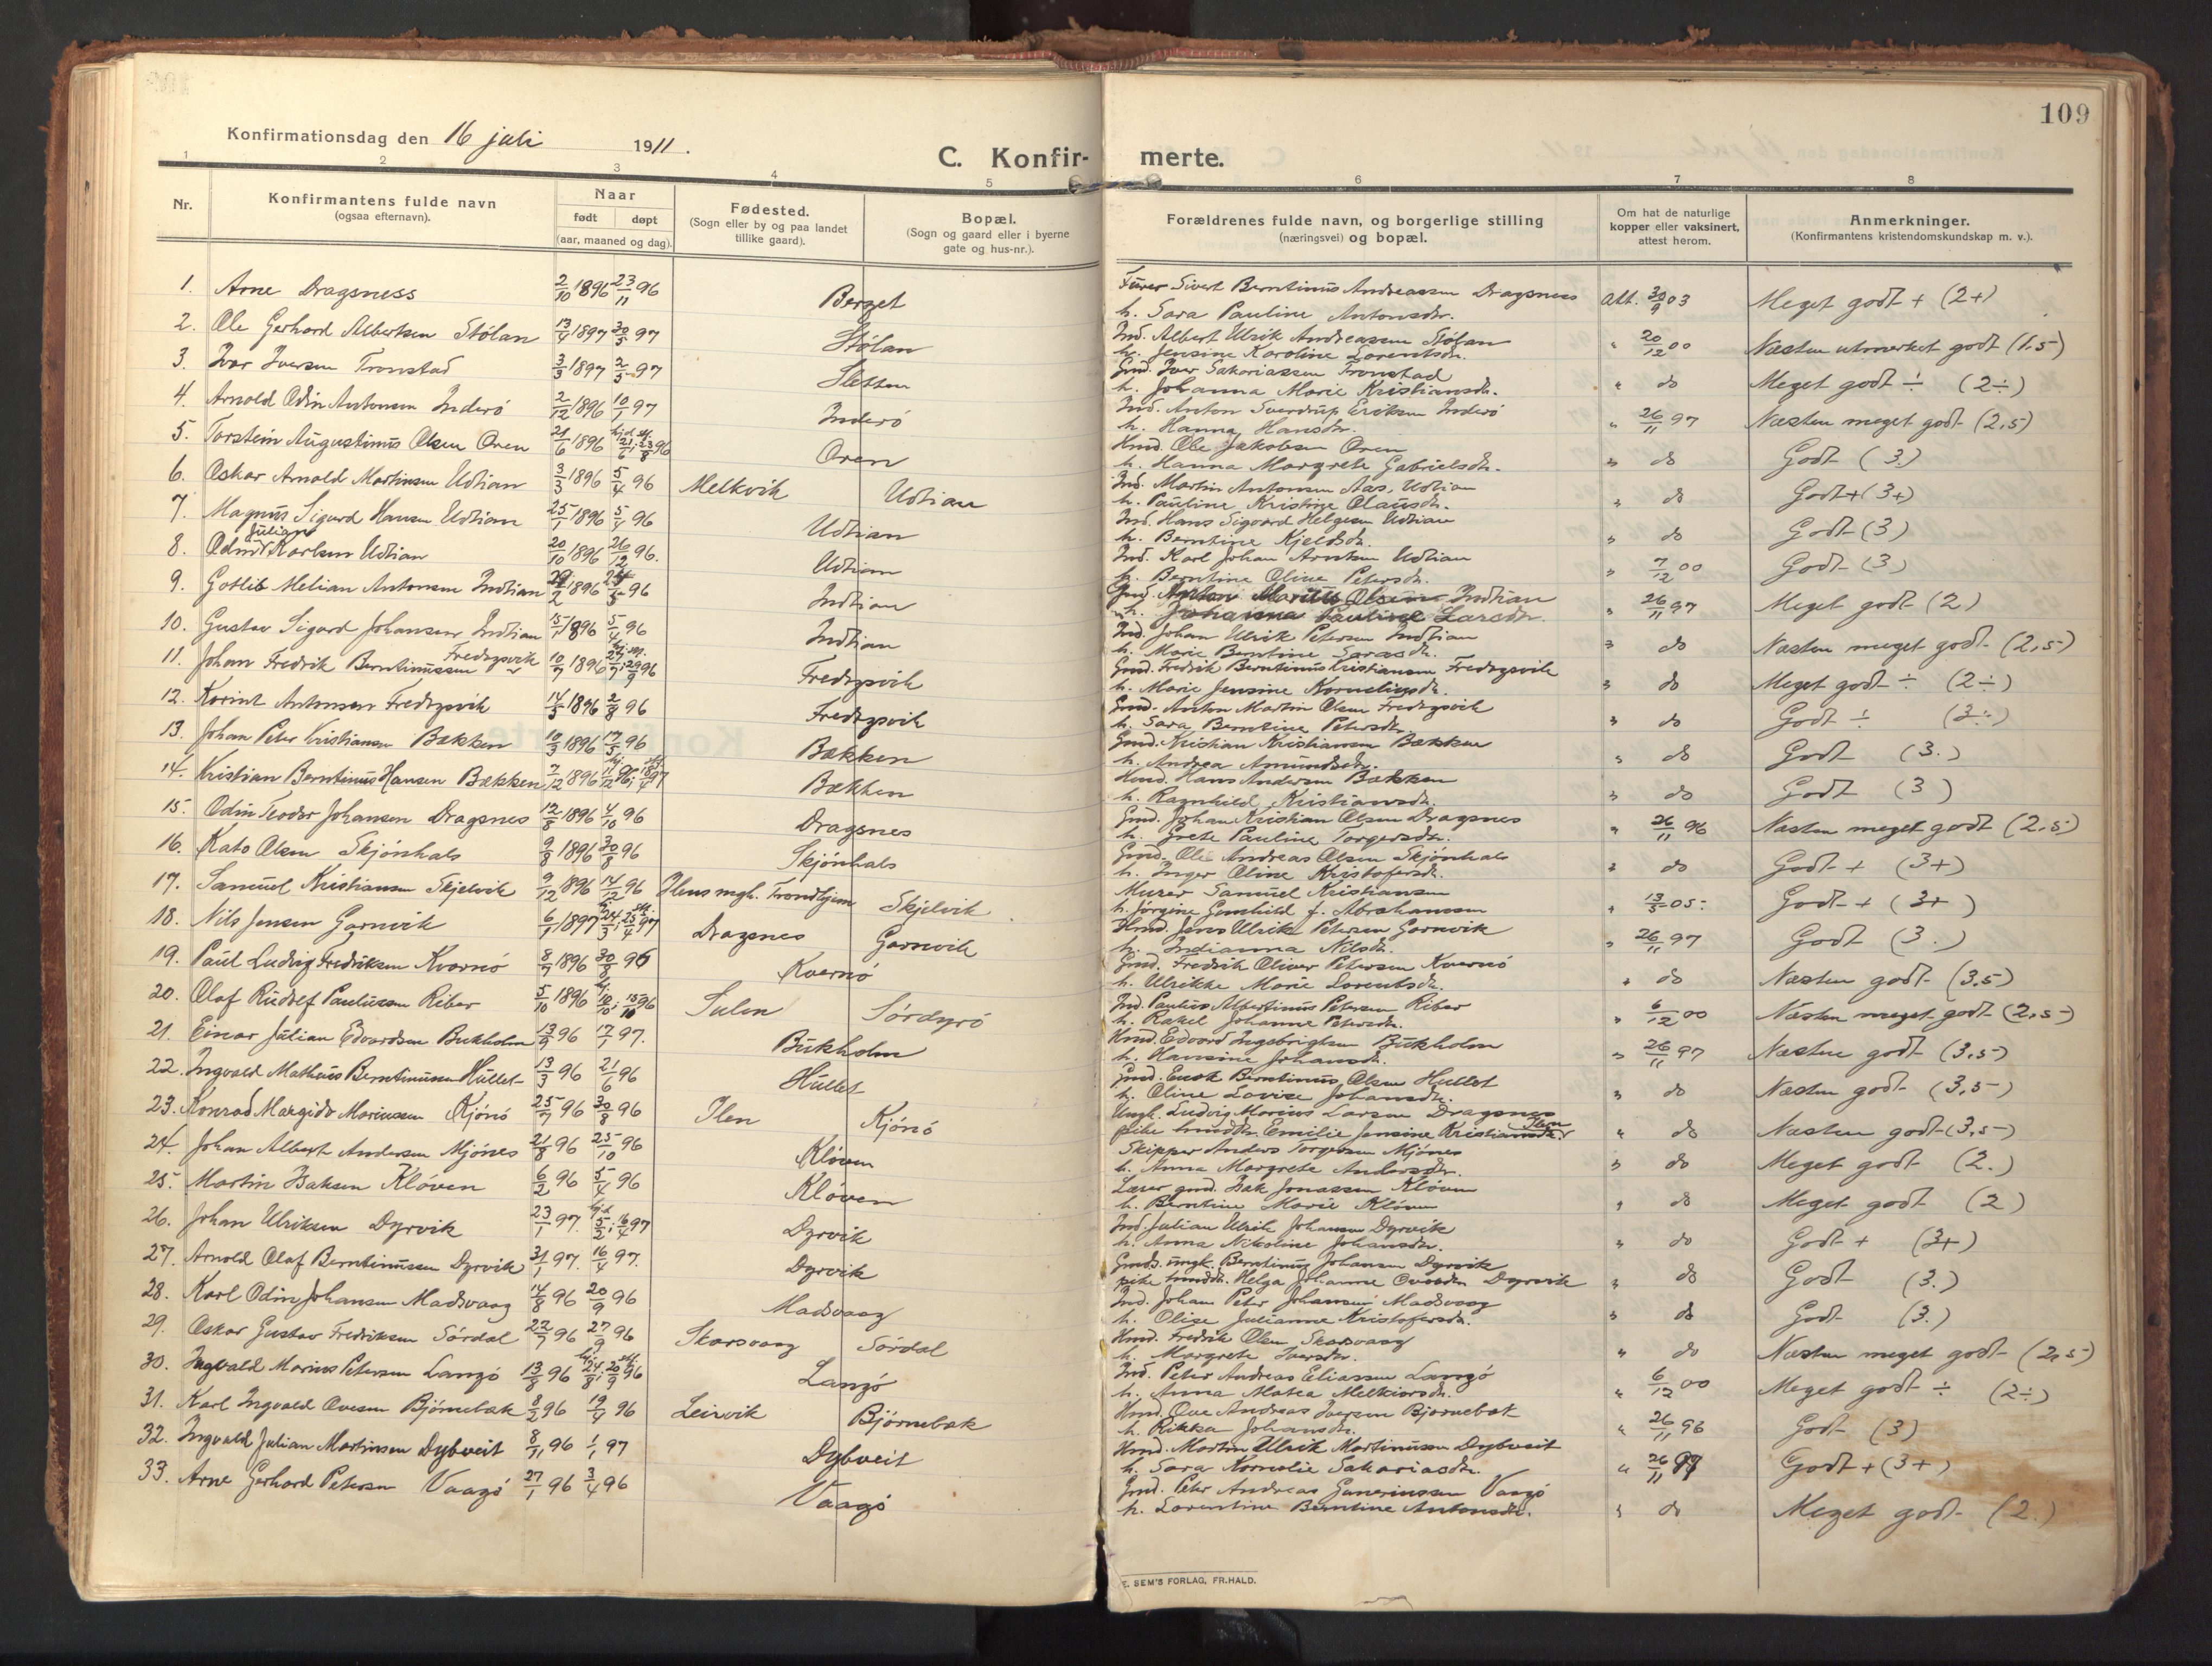 109
Konfirmationsdag den 16 juli 1911.
C. Konfir- merte.
1 2 3 4 5 6 7 8
Nr.
Konfirmantens fulde navn
(ogsaa efternavn).
Naar
født døpt
(aar, maaned og dag).
Fødested.
(Sogn eller by og paa landet
tillike gaard).
Bopæl.
(Sogn og gaard eller i byerne
gate og hus-nr.).
Forældrenes fulde navn, og borgerlige stilling
(næringsvei) og bopæl.
Om hat de naturlige
kopper eller vaksinert,
attest herom.
Anmerkninger.
(Konfirmantens kristendomskundskap m. v.).
1. Arne Dragsness 2/10 1896 23/11 96 Berget Sivert Berntinus Andreassen Dragsness Att. 30/9 03 Meget godt + (2+)
h. Sara Pauline Antonsdr.
2. Ole Gerhard Albertsen Stølan 13/4 1897 30/5 97 Stølan Ind. Albert Ulrik Andreassen Stølan " 20/12 00 Næsten utmerket godt (1,5)
h. Jensine Karoline Lorentsdr.
3. Ivar Iversen Tronstad 3/3 1897 2/5 97 Sletten Gmd. Iver Sakariassen Tronstad " do Meget godt ÷ (2÷)
h. Johanna Marie Kristiansdr.
4. Arnold Odin Antonsen Inderö 2/12 1896 10/1 97 Inderö Ind. Anton Sverdrup Eriksen Inderö " 26/11 97 Næsten meget godt (2,5)
h. Hanna Hansdr.
5. Torstein Augustinus Olsen Oren 21/6 1896 hjd. 21/6; st. 23/8 96 Oren Hmd. Ole Jakobsen Oren " do Godt (3)
h. Hanna Margrete Gabrielsdr.
6. Oskar Arnold Martinsen Udtian 3/3 1896 5/4 96 Melkvik Udtian Ind. Martin Antonsen Aas, Udtian " do Godt + (3+)
h. Pauline Kristine Olausdr.
7. Magnus Sigurd Hansen Udtian 25/1 1896 5/4 96 Udtian Ind. Hans Sigvard Helgesen Udtian " do Godt (3)
h. Berntine Kjeldsdr.
Julian
8. Odmund Karlsen Udtian 20/10 1896 26/12 96. Udtian Ind. Karl Johan Arntsen Udtian " 7/12 00 Godt (3)
h. Berntine Oline Petersdr.
9. Gotlib Melian Antonsen Indtian 29/2 1896 24/5 96 Indtian Gmd. Anton Marius Olsen Indtian " 26/11 97 Meget godt (2)
h. Johanna Pauline Larsdr.
10. Gustav Sigurd Johansen Indtian 15/1 1896 5/4 96 Indtian Ind. Johan Ulrik Petersen Indtian " do Næsten meget godt (2,5)
h. Marie Berntine Sarasdr.
11. Johan Fredrik Berntinussen Fredagsvik 10/7 1896 27/7; 20/9 96 Fredagsvik Gmd. Fredrik Berntinus Kristiansen Fredagsvik " do Meget godt ÷ (2÷)
h. Marie Jensine Korneliusdr.
12. Korint Antonsen Fredagsvik 14/5 1896 2/8 96 Fredagsvik Gmd. Anton Martin Olsen Fredagsvik " do Godt ÷ (3÷)
h. Sara Berntine Petersdr.
13. Johan Peter Kristiansen Bækken 10/3 1896 17/5 96 Bækken Gmd. Kristian Kristiansen Bækken " do Godt (3.)
h. Andrea Amundsdr.
14. Kristian Berntinus Hansen Bækken 7/12 1896 hj. 11/12 96; 18/4 97 Bækken Hmd. Hans Andersen Bækken " do Godt (3)
h. Ragnhild Kristiansdr.
15. Odin Teodor Johansen Dragsnes 12/8 1896 4/10 96 Dragsnes Gmd. Johan Kristian Olsen Dragsnes " 26/11 96 Næsten meget godt (2,5)
h. Grete Pauline Torgersdr.
16. Kato Olsen Skjönhals 9/8 1896 30/8 96 Skjönhals Gmd. Ole Andreas Olsen Skjönhals " do Godt + (3+)
h. Inger Oline Kristofersdr.
17. Samuel Kristiansen Skjelvik 9/12 1896 14/12 96 Ilens mgh. Trondhjem Skjelvik Murer Samuel Kristiansen " 13/5 05 Godt + (3+)
h. Jörgine Gunhild f. Abrahamsen
18. Nils Jensen Garnvik 6/1 1897 hj. 24/3; st. 25/4 97 Dragsnes Garnvik Hmd. Jens Ulrik Petersen Garnvik " 26/11 97 Godt (3.)
h. Indianna Nilsdr.
19. Paul Ludvig Fredriksen Kvernö 8/7 1896 30/8 96 Kvernö Gmd. Fredrik Oliver Petersen Kvernö " do Næsten godt (3,5)
h. Ulrikke Marie Lorentsdr.
20. Olaf Rudolf Paulussen Ribar 5/10 1896 hj. 10/10; 18/10 96 Sulen Sördyrö Ind. Paulus Albertinus Petersen Ribar " 6/12 00 Næsten meget godt (2,5)
h. Rakel Johanne Petersdr.
21. Einar Julian Edvardsen Bukholm 13/9 96 17/1 97. Bukholm Hmd. Edvard Ingebrigtsen Bukholm " 26/11 97 Næsten godt (3,5)
h. Hansine Johansdr.
22. Ingvald Mathæus Berntinussen Hullet 13/3 96 21/6 96 Hullet Gmd. Enok Berntinus Olsen Hullet " do Næsten godt (3,5)
h. Oline Lovise Johansdr.
23. Konrad Margido Mariussen Kjönö 25/7 96 30/8 96 Ilen Kjönö Ungk. Ludvig Marius Larsen Dragsnes " do Næsten godt (3,5)
pike Emilie Jensine Kristiansdr. Ilen
24. Johan Albert Andersen Mjönes 21/8 96 25/10 96 Klöven Skipper Anders Torgersen Mjönes " do Meget godt (2.)
h. Anna Margrete Andersdr.
25. Martin Isaksen Klöven 6/2 96 5/4 96 Klöven Lærer gmd. Isak Jonassen Klöven " do Meget godt (2)
h. Berntine Marie Klöven
26. Johan Ulriksen Dyrvik 23/1 97. hjd. 5/2; 16/4 97 Dyrvik Ind. Julian Ulrik Johansen Dyrvik " do Godt + (3+)
h. Anna Nikoline Johansdr.
27. Arnold Olaf Berntinussen Dyrvik 31/1 97. 16/4 97. Dyrvik Gmds. ungk. Berntinus Johansen Dyrvik " do Godt (3.)
pike Helga Johanne Dyrvik
28. Karl Odin Johansen Madsvaag 14/8 96 20/9 96 Madsvaag Ind. Johan Peter Johansen Madsvaag " do Godt (3.)
h. Olise Julianne Kristofersdr.
29. Oskar Gustav Fredriksen Sördal 22/7 96 27/9 96 Skarsvaag Sördal Hmd. Fredrik Olsen Skarsvaag " do Næsten meget godt (2,5)
h. Margrete Iversdr.
30. Ingvald Marius Petersen Langö 13/8 96 hj. 24/8; 20/9 96 Langö Ind. Peter Andreas Eliassen Langö " 6/12 00 Meget godt ÷ (2÷)
h. Anna Matea Melkiorsdr.
31. Karl Ingvald Ovesen Björnebak 8/2 96 19/4 96 Leirvik Björnebak Hmd. Ove Andreas Iversen Bjornebak " 26/11 96 Godt (3)
h. Rikka Johansdr.
32. Ingvald Julian Martinsen Dybveit 8/11 96 1/1 97 Dybveit Hmd. Martin Ulrik Martinussen Dybveit " 26/11 97 Godt + (3+)
h. Sara Kornelie Sakariasdr.
33. Arne Gerhard Petersen Vaagö 27/1 96 3/4 96 Vaagö Gmd. Peter Andreas Gunerinssen Vaagö " do Meget godt (2.)
h. Lorentine Berntine Antonsdr.
E. SEM'S FORLAG, FR.HALD.